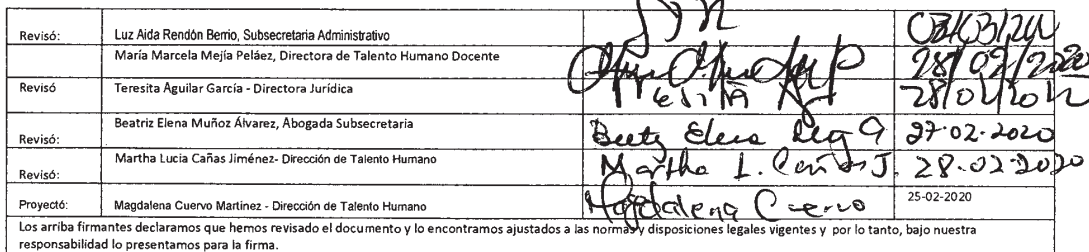 Revisó: Luz Aida Rendón Berrio, Subsecretaria Administrativo
María Marcela Mejía Peláez, Directora de Talento Humano Docente 28/02/2020
Revisó Teresita Aguilar García - Directora Jurídica
Revisó: Beatriz Elena Muñoz Álvarez, Abogada Subsecretaria 27-02-2020
Revisó: Martha Lucia Cañas Jiménez- Dirección de Talento Humano Martha L. Cañas J. 28-02-2020
Proyectó: Magdalena Cuervo Martinez - Dirección de Talento Humano Magdalena Cuervo 25-02-2020
Los arriba firmantes declaramos que hemos revisado el documento y lo encontramos ajustados a las normas y disposiciones legales vigentes y por lo tanto, bajo nuestra
responsabilidad lo presentamos para la firma.